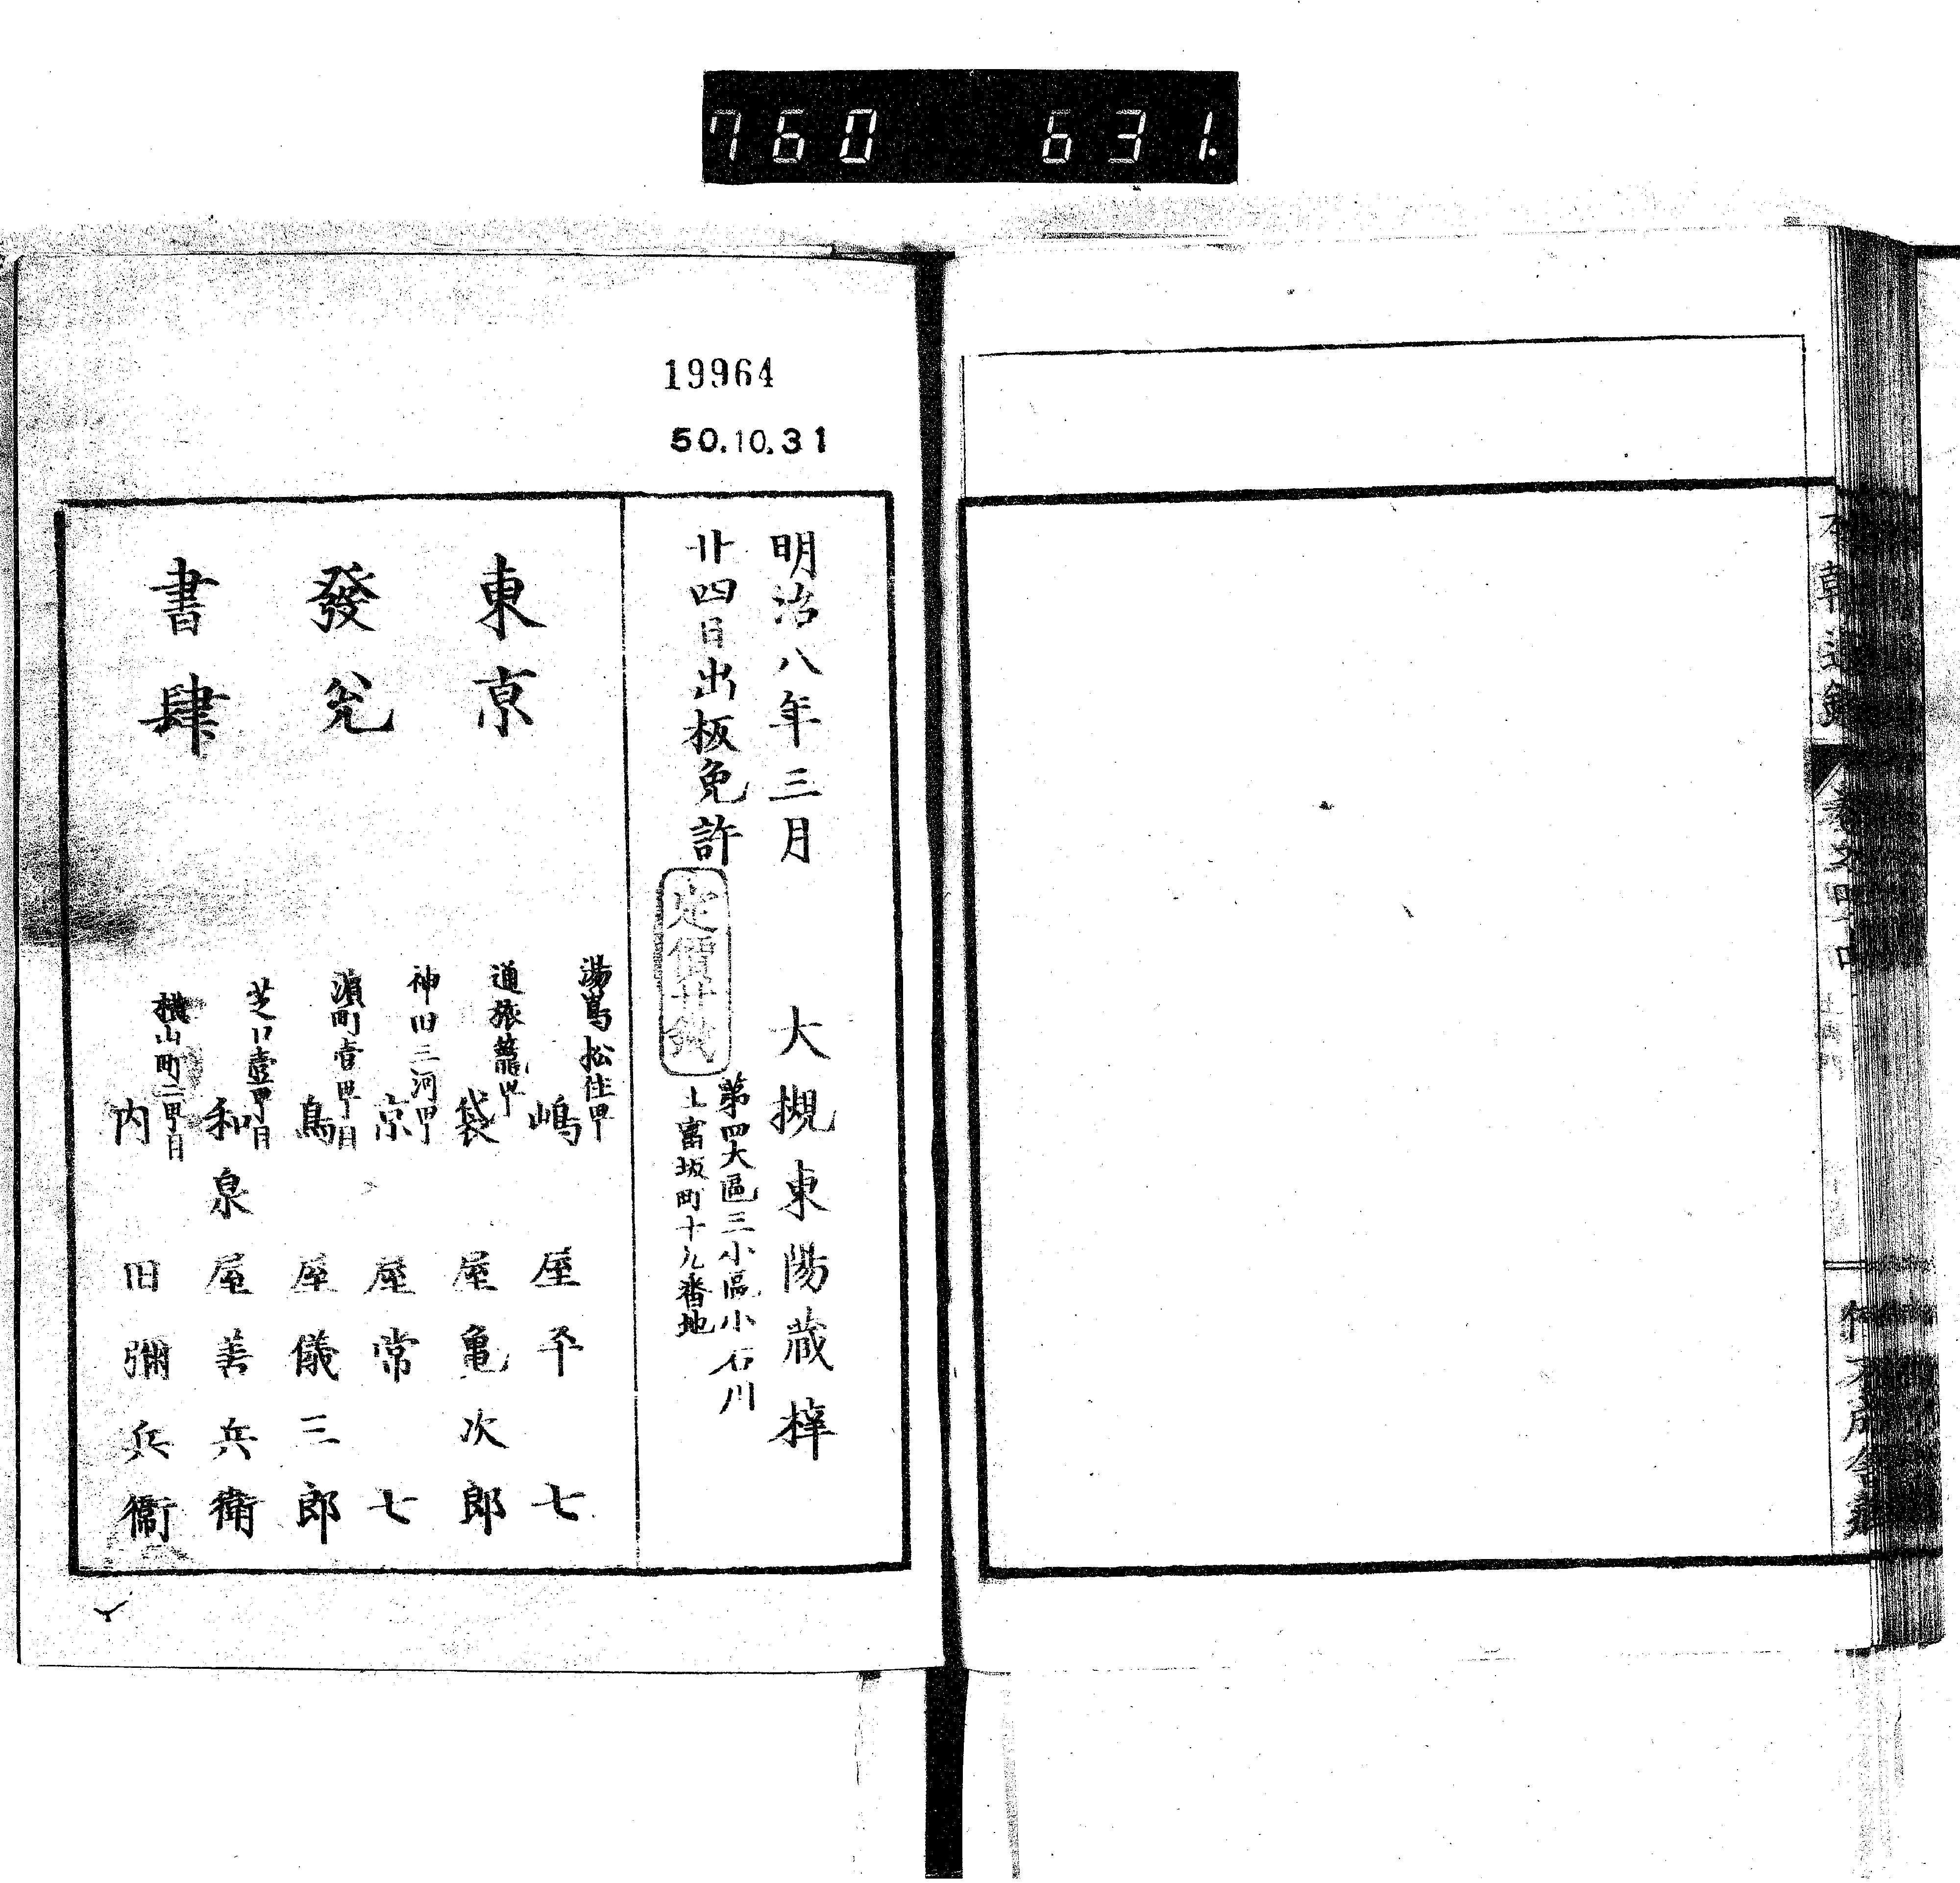 760 631.
19964
50.10.31
明治八年三月
廿四日出板免許
定價廿銭
大槻東陽蔵梓
第四大區三小區小石川
上富坂町十九番地
東京
發兌
書肆
湯嶌松住町
嶋屋平七
通旅籠町
袋屋亀次郎
神田三河町
京屋常七
濵町壹町目
鳥屋儀三郎
芝口壹町目
和泉屋善兵衛
横山町二町目
内田彌兵衞